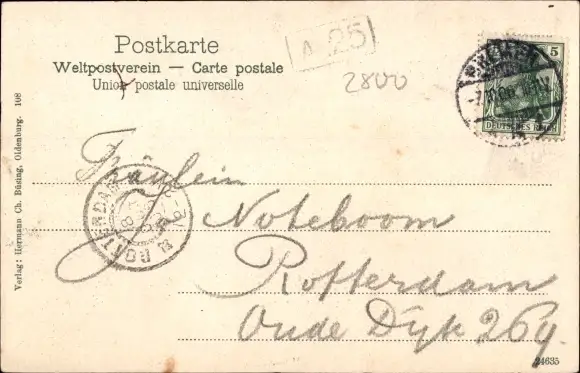 Postkarte
Weltpostverein — Carte postale
Union postale universelle
A 25
2800
5
DEUTSCHES REICH
Verlag: Hermann Ch. Büsing, Oldenburg. 108
ROTTERDAM
Fräulein
J. Noteboom
Rotterdam
Oude Dyk 269.
24635